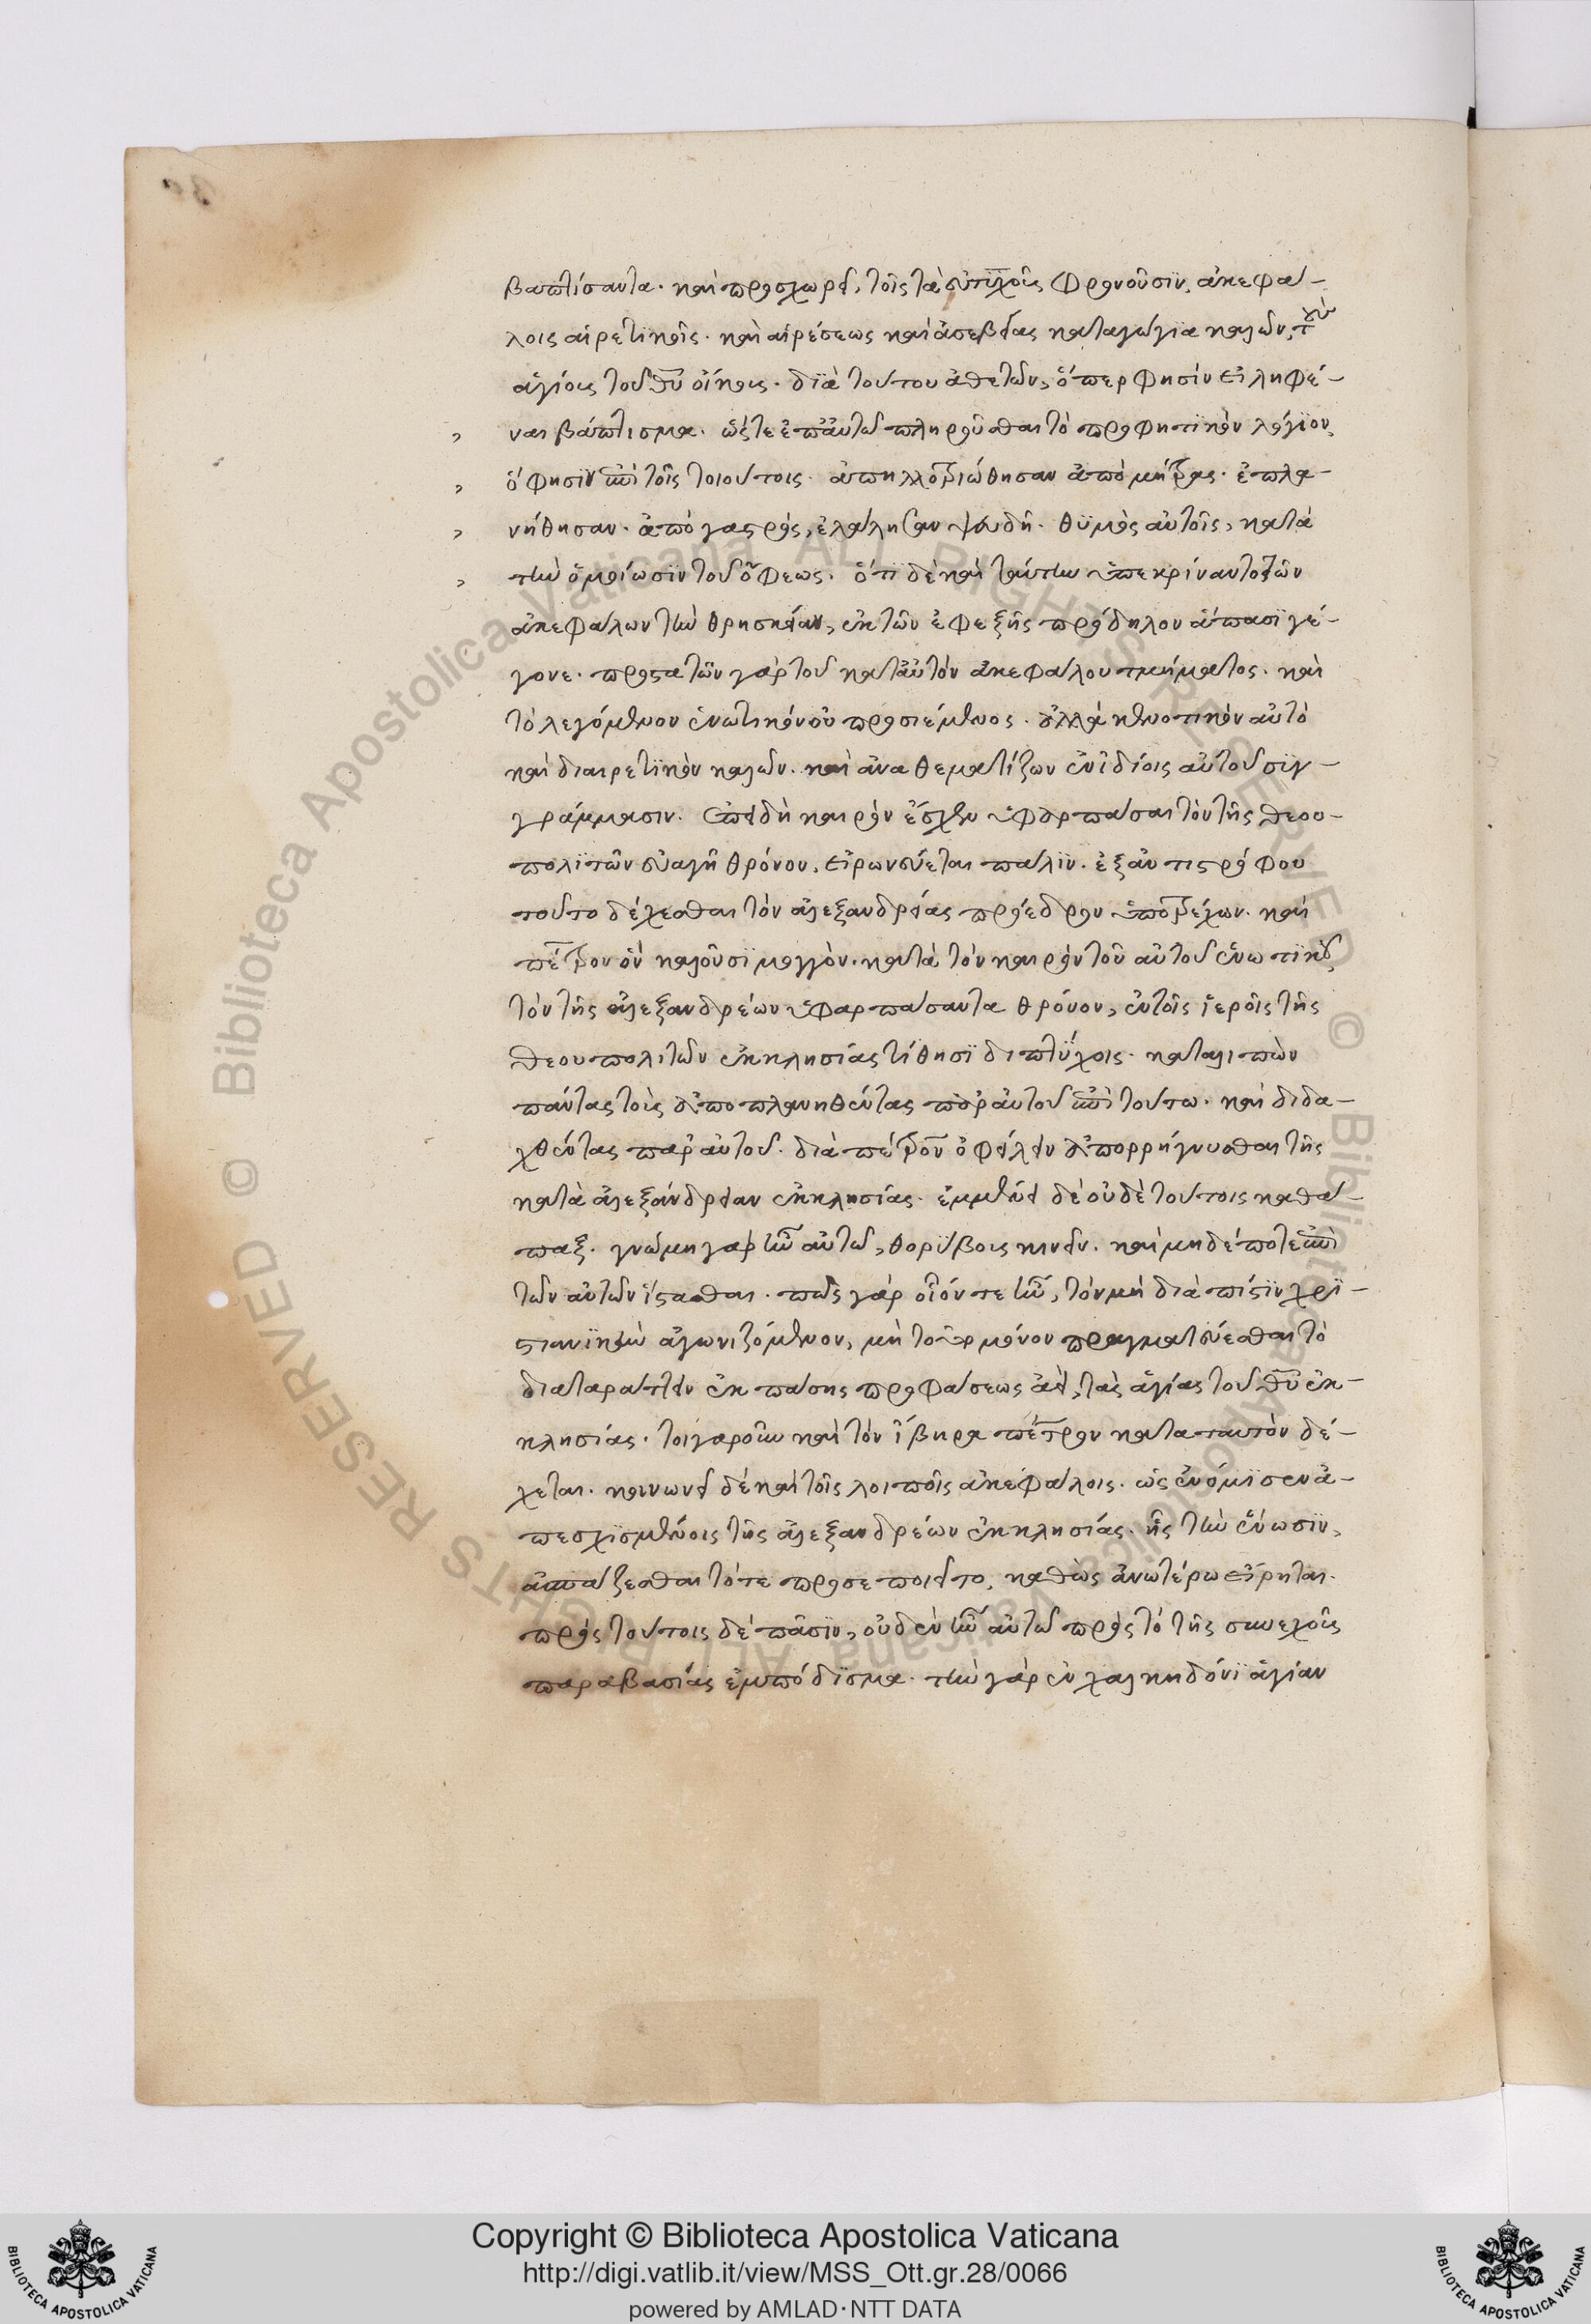 βαπτίσαντα. καὶ προσχωρεῖ, τοῖς τὰ εὐτυχοῦς φρονοῦσιν, ἀκεφά–
λοις αἱρετικοῖς. καὶ αἱρέσεως καὶ ἀσεβείας καταγώγια καλῶν, τοὺς
ἁγίους τοῦ θῡ οἴκους. διὰ τούτου ἀθετῶν, ὅπερ φησὶν εἰληφέ–
ναι βάπτισμα. ὥστε ἐπ' αὐτῶ πληροῦσθαι τὸ προφητικὸν λόγιον
ὅ φησιν ἐπὶ τοῖς τοιούτοις. ἀπηλλοτριώθησαν ἀπὸ μήτρας. ἐπλα–
νήθησαν. ἀπὸ γαστρὸς, ἐλάλησαν ψευδῆ. θυμὸς αὐτοῖς, κατὰ
τὴν ὁμοίωσιν τοῦ ὄφεως. ὅτι δὲ καὶ ταύτην ὑπεκρίνατο τῶν
ἀκεφάλων τὴν θρησκείαν, ἐκ τῶν ἐφεξῆς πρόδηλον ἅπασι γέ–
γονε. προστατῶν γὰρ τοῦ κατ' αὐτὸν ἀκεφάλου τμήματος. καὶ
τὸ λεγόμενον ἑνωτικὸν οὐ προσιέμενος. ἀλλὰ κενωτικὸν αὐτὸ
καὶ διαιρετικὸν καλῶν. καὶ ἀναθεματίζων ἐν ἰδίοις αὐτοῦ συγ–
γράμμασιν. ἐπειδὴ καιρὸν ἔσχεν ὑφαρπάσαι τὸν τῆς θεου–
πολιτῶν εὐαγῆ θρόνον, εἰρωνεύεται πάλιν. ἐξ ἀντιστρόφου
τοῦτο δέχεσθαι τὸν ἀλεξανδρείας πρόεδρον ὑποτρέχων. καὶ
πέτρον ὃν καλοῦσι μογγὸν. κατὰ τὸν καιρὸν τοῦ αὐτοῦ ἑνωτικοῦ
τὸν τῆς ἀλεξανδρέων ὑφαρπάσαντα θρόνον, ἐν τοῖς ἱεροῖς τῆς
θεουπολιτῶν ἐκκλησίας τίθησι διπτύχοις. καταλιπὼν
πάντας τοὺς ἀποπλανηθέντας παρ' αὐτοῦ ἐπὶ τούτω. καὶ διδα–
χθέντας παρ' αὐτοῦ. διὰ πέτρον ὀφείλειν ἀπορρήγνυσθαι τῆς
κατὰ ἀλεξάνδρειαν ἐκκλησίας. ἐμμένει δὲ οὐδὲ τούτοις καθά–
παξ. γνώμη γὰρ ἦν αὐτῶ, θορύβοις κινεῖν. καὶ μηδέποτε ἐπὶ
τῶν αὐτῶν ἵστασθαι. πῶς γὰρ οἷόν τε ἦν, τὸν μὴ διὰ πίστιν χρι–
στιανικὴν ἀγωνιζόμενον, μὴ τοῦτο μόνον πραγματεύεσθαι τὸ
διαταράττειν ἐκ πάσης προφάσεως ἀεὶ, τὰς ἁγίας τοῦ θῡ ἐκ–
κλησίας. τοιγαροῦν καὶ τὸν ἴβηρα πέτρον κατὰ ταυτὸν δέ–
χεται. κοινωνεῖ δὲ καὶ τοῖς λοιποῖς ἀκεφάλοις. ὡς ἐνόμισεν ἀ–
πεσχισμένοις τῆς ἀλεξανδρέων ἐκκλησίας. ἧς τὴν ἕνωσιν,
ἀσπάζεσθαι τότε προσεποιεῖτο, καθὼς ἀνωτέρω εἴρηται.
πρὸς τούτοις δὲ πᾶσιν, οὐδὲν ἦν αὐτῶ πρὸς τὸ τῆς συνεχοῦς
παραβασίας ἐμπόδισμα. τὴν γὰρ ἐν χαλκηδόνι ἁγίαν
Copyright © Biblioteca Apostolica Vaticana
http://digi.vatlib.it/view/MSS_Ott.gr.28/0066
powered by AMLAD·NTT DATA